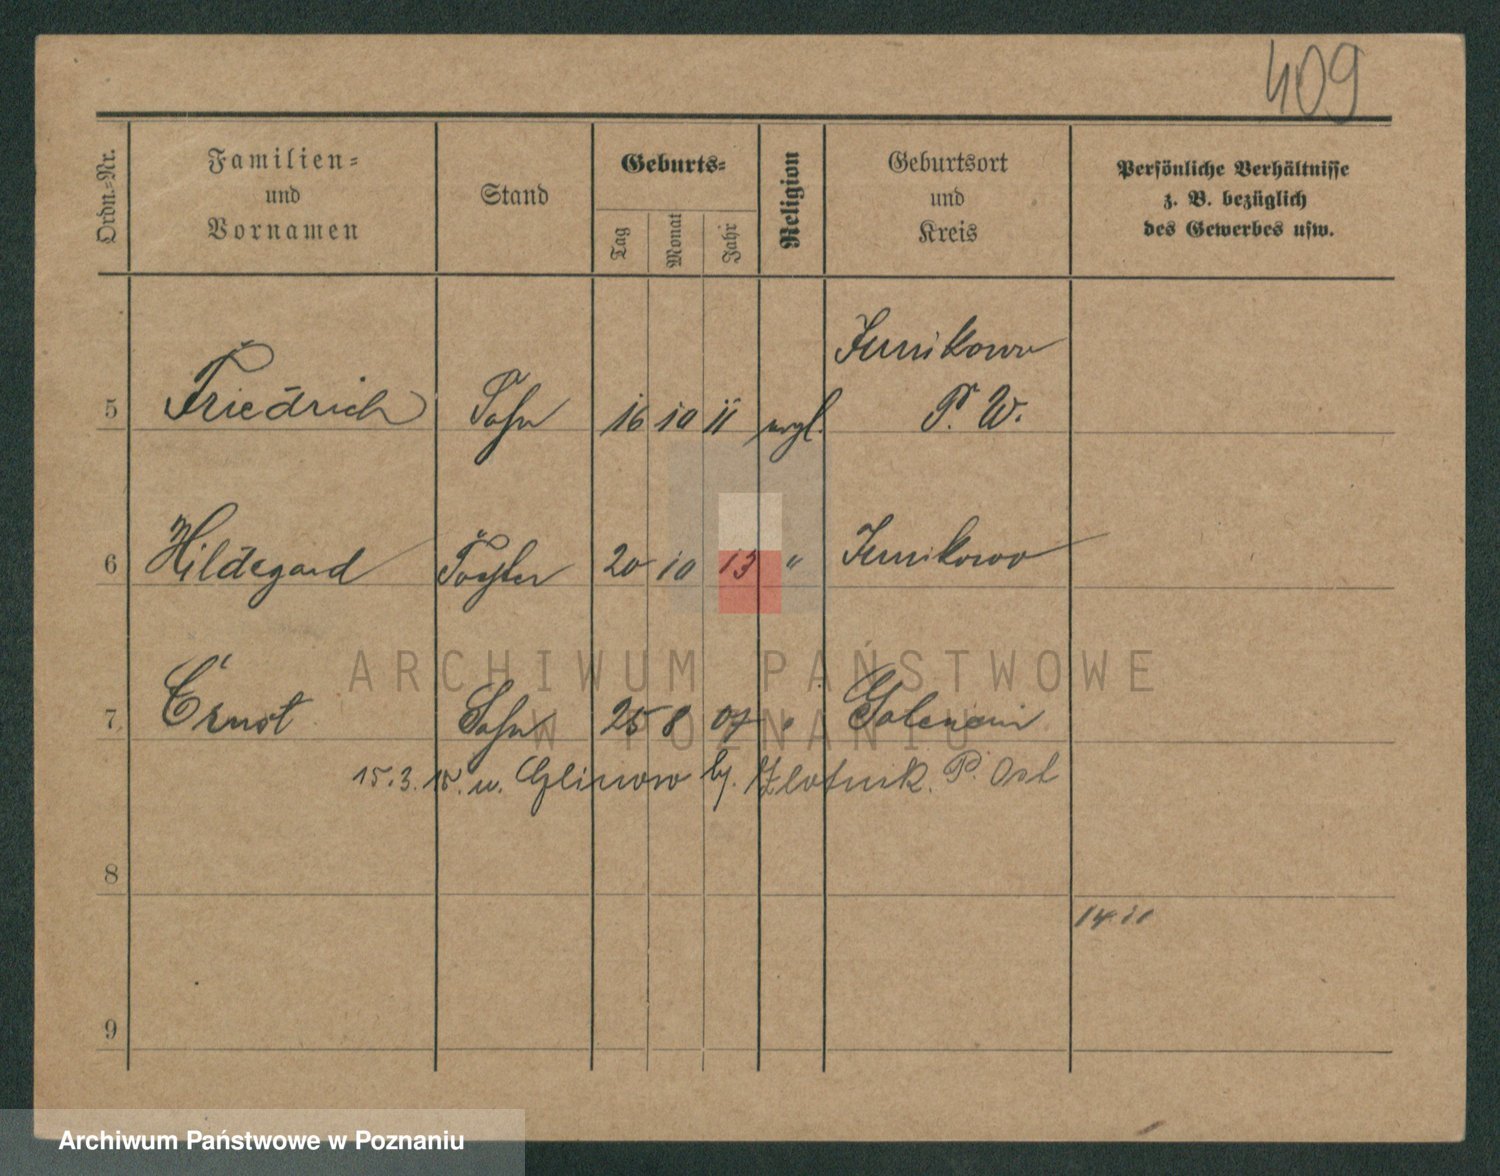 409
Ordn.-Nr.
Familien-
und
Vornamen
Stand
Geburts-
Tag
Monat
Jahr
Religion
Geburtsort
und
Kreis
Persönliche Verhältnisse
z. B. bezüglich
des Gewerbes usw.
Junikowo
5 Friedrich Sohn 16 10 11 evgl. P. W.
6 Hildegard Tochter 20 10 13 " Junikowo
ARCHIWUM PAŃSTWOWE
W POZNANIU
7 Ernst Sohn 25 8 07 "
15.3.18. n. Glinowo b/. Zlotnik. P. Ost
8
14.11
9
Archiwum Państwowe w Poznaniu